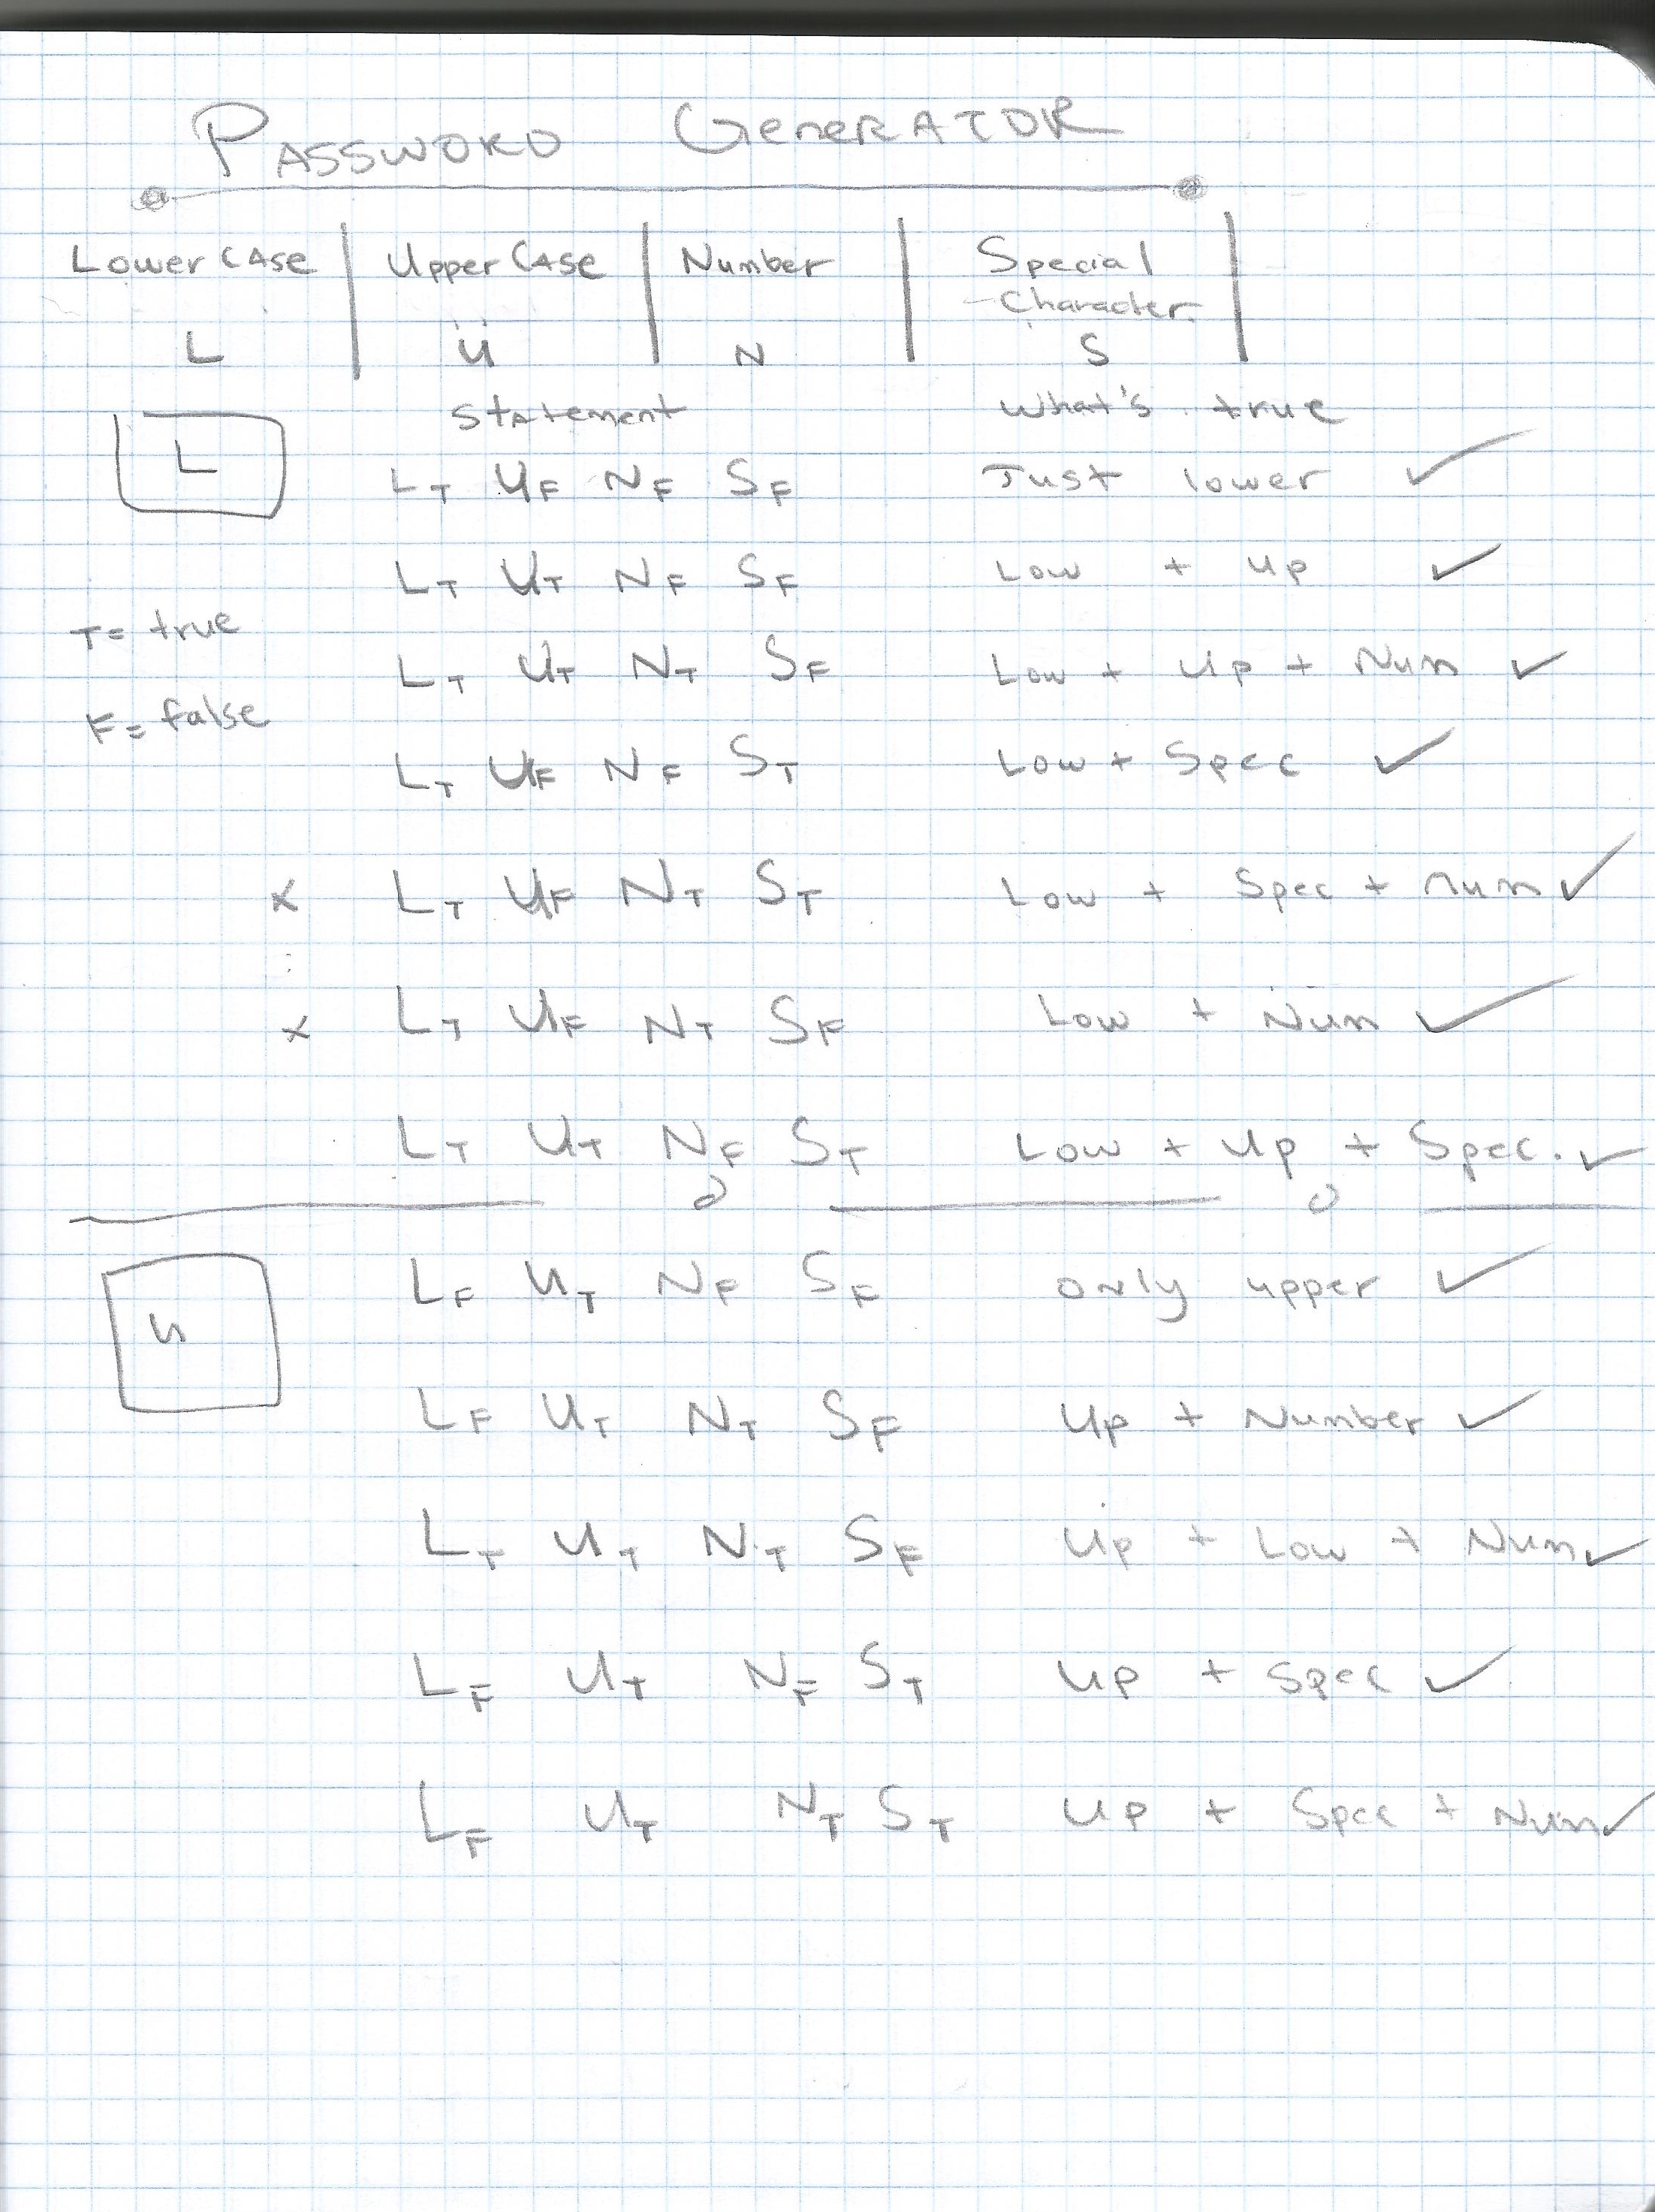 Password Generator
Lower Case | Upper Case | Number | Special Character
L | U | N | S
Statement What's true
L
LT UF NF SF Just lower ✓
LT UT NF SF Low + Up ✓
T = true
LT UT NT SF Low + Up + Num ✓
F = false
LT UF NF ST Low + Spec ✓
x LT UF NT ST Low + Spec + Num ✓
x LT UF NT SF Low + Num ✓
LT UT NF ST Low + Up + Spec. ✓
U
LF UT NF SF Only upper ✓
LF UT NT SF Up + Number ✓
LT UT NT SF Up + Low + Num ✓
LF UT NF ST Up + Spec ✓
LF UT NT ST Up + Spec + Num ✓